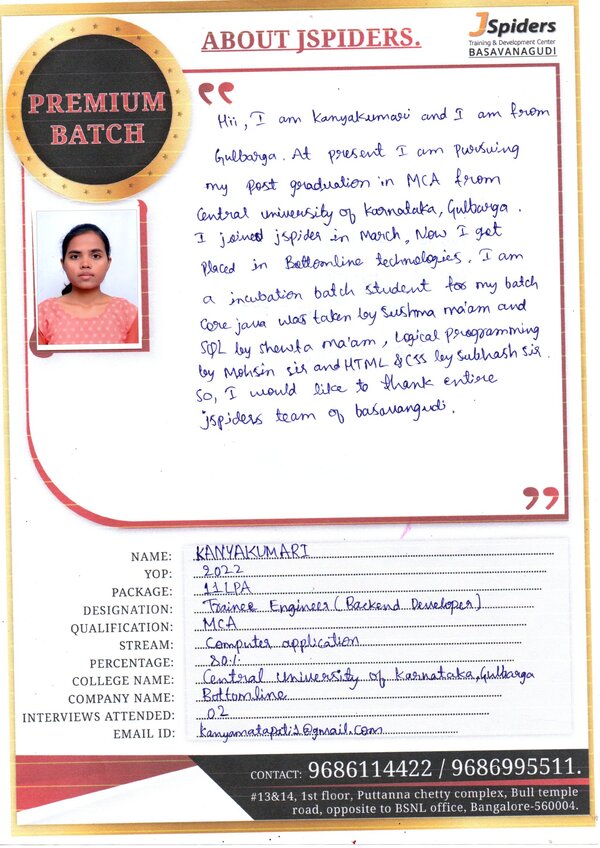 ABOUT JSPIDERS.
JSpiders
Training & Development Center
BASAVANAGUDI
PREMIUM
BATCH
Hii, I am Kanyakumari and I am from
Gulbarga. At present I am pursuing
my post graduation in MCA from
Central university of Karnataka, Gulbarga.
I joined jspider in March, Now I get
placed in Bottomline technologies. I am
a incubation batch student for my batch
Core java was taken by Sushma ma'am and
SQL by shewta ma'am, Logical programming
by Mohsin sir and HTML & CSS by Subhash sir.
So, I would like to thank entire
jspiders team of basavangudi.
NAME: KANYAKUMARI
YOP: 2022
PACKAGE: 11LPA
DESIGNATION: Trainee Engineer (Backend Developer)
QUALIFICATION: MCA
STREAM: Computer application
PERCENTAGE: 80%
COLLEGE NAME: Central University of Karnataka, Gulbarga
COMPANY NAME: Bottomline
INTERVIEWS ATTENDED: 02
EMAIL ID:
CONTACT: 9686114422 / 9686995511.
#13&14, 1st floor, Puttanna chetty complex, Bull temple
road, opposite to BSNL office, Bangalore-560004.